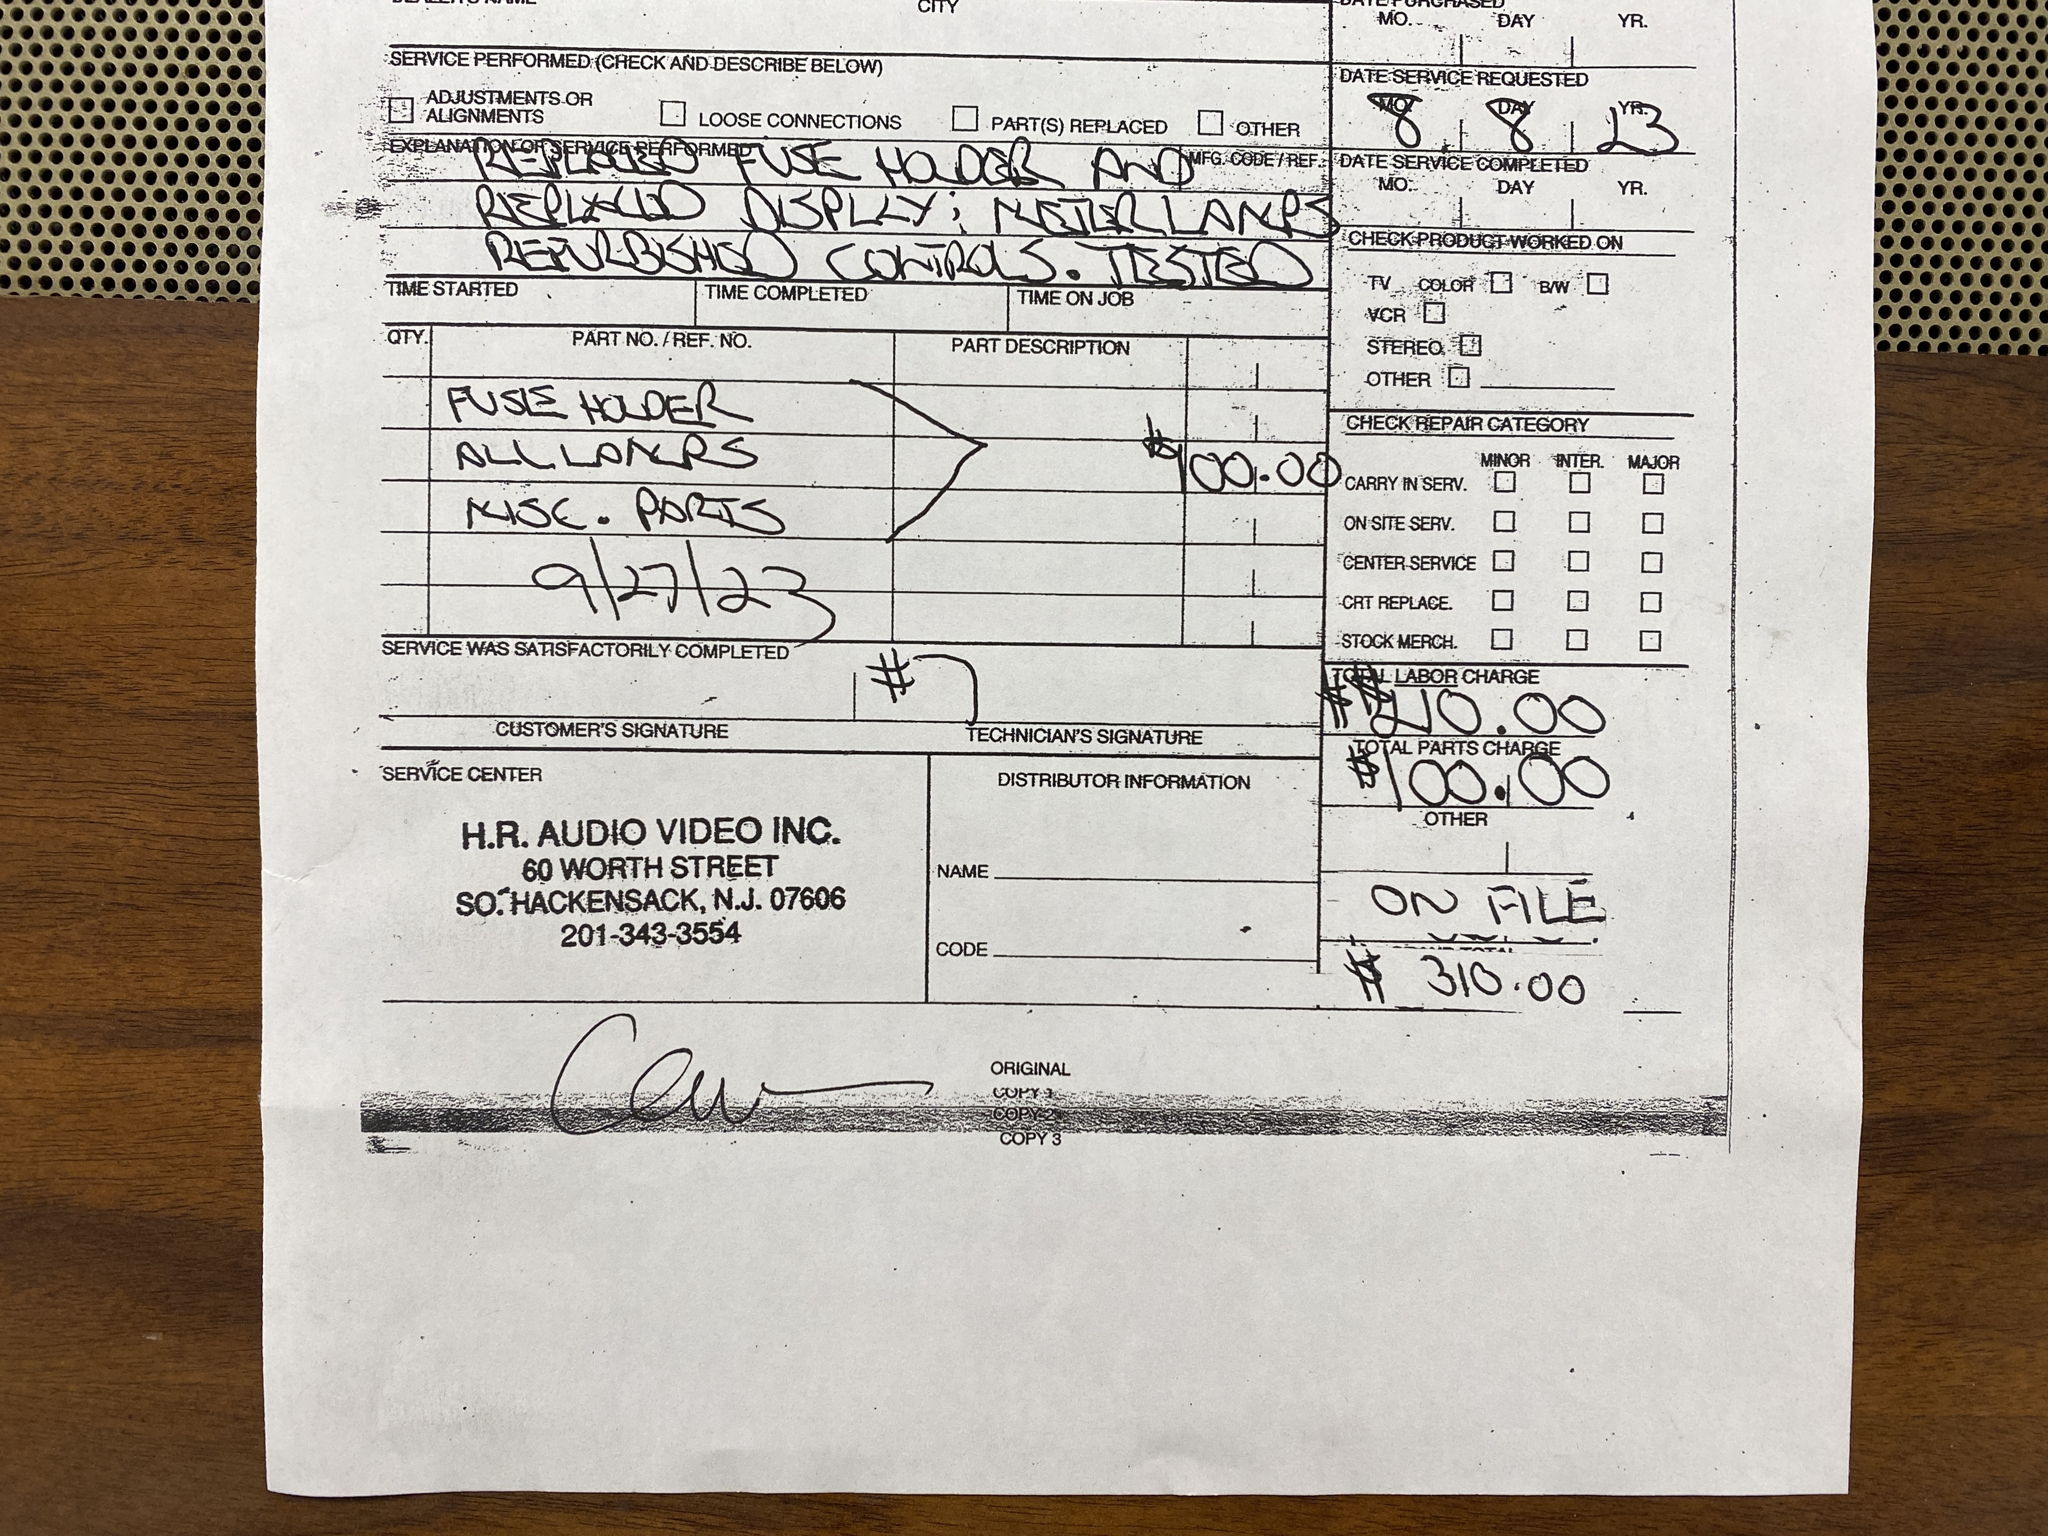 DEALER'S NAME CITY
DATE PURCHASED
MO. DAY YR.
SERVICE PERFORMED (CHECK AND DESCRIBE BELOW)
ADJUSTMENTS OR ALIGNMENTS LOOSE CONNECTIONS PART(S) REPLACED OTHER
DATE SERVICE REQUESTED
MO. DAY YR.
8 8 23
EXPLANATION OF SERVICE PERFORMED MFG. CODE / REF.
REPLACED FUSE HOLDER AND
REPLACED DISPLAY; METER LAMPS
REFURBISHED CONTROLS. TESTED
DATE SERVICE COMPLETED
MO. DAY YR.
TIME STARTED TIME COMPLETED TIME ON JOB
CHECK PRODUCT WORKED ON
TV COLOR B/W
VCR
STEREO
OTHER
QTY. PART NO. / REF. NO. PART DESCRIPTION
FUSE HOLDER
ALL LAMPS $100.00
MISC. PARTS
9/27/23
CHECK REPAIR CATEGORY
MINOR INTER. MAJOR
CARRY IN SERV.
ON SITE SERV.
CENTER SERVICE
CRT REPLACE.
STOCK MERCH.
SERVICE WAS SATISFACTORILY COMPLETED
#7
CUSTOMER'S SIGNATURE TECHNICIAN'S SIGNATURE
TOTAL LABOR CHARGE
$210.00
TOTAL PARTS CHARGE
$100.00
OTHER
ON FILE
$ 310.00
SERVICE CENTER
H.R. AUDIO VIDEO INC.
60 WORTH STREET
SO. HACKENSACK, N.J. 07606
201-343-3554
DISTRIBUTOR INFORMATION
NAME
CODE
ORIGINAL
COPY 1
COPY 2
COPY 3